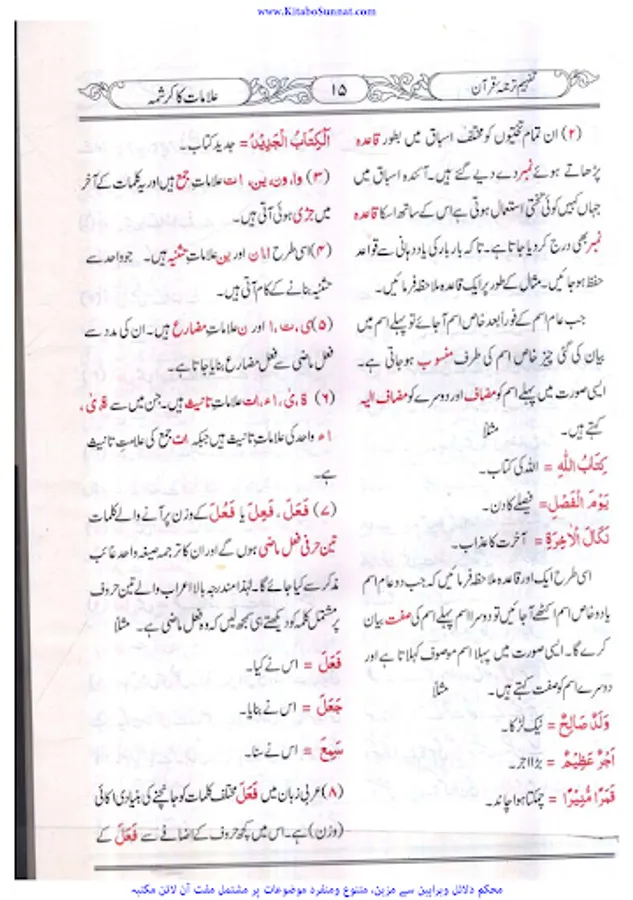 www.KitaboSunnat.com
تفہیم ترجمۂ قرآن
۱۵
علامات کا کرشمہ
(۲) ان تمام تختیوں کو مختلف اسباق میں بطور قاعدہ
پڑھاتے ہوئے نمبر دے دیے گئے ہیں۔ آئندہ اسباق میں
جہاں کہیں کوئی تختی استعمال ہوتی ہے اس کے ساتھ اسکا قاعدہ
نمبر بھی درج کر دیا جاتا ہے۔ تاکہ بار بار کی یاد دہانی سے قواعد
حفظ ہو جائیں۔ مثال کے طور پر ایک قاعدہ ملاحظہ فرمائیں۔
جب عام اسم کے فوراً بعد خاص اسم آ جائے تو پہلے اسم میں
بیان کی گئی چیز خاص اسم کی طرف منسوب ہو جاتی ہے۔
ایسی صورت میں پہلے اسم کو مضاف اور دوسرے کو مضاف الیہ
کہتے ہیں۔ مثلاً
كِتَابُ اللّٰهِ = اللہ کی کتاب۔
يَوْمَ الْفَصْلِ = فیصلے کا دن۔
نَكَالَ الْاٰخِرَةِ = آخرت کا عذاب۔
اسی طرح ایک اور قاعدہ ملاحظہ فرمائیں کہ جب دو عام اسم
یا دو خاص اسم اکٹھے آ جائیں تو دوسرا اسم پہلے اسم کی صفت بیان
کرے گا۔ ایسی صورت میں پہلا اسم موصوف کہلاتا ہے اور
دوسرے اسم کو صفت کہتے ہیں۔ مثلاً
وَلَدٌ صَالِحٌ = نیک لڑکا۔
اَجْرٌ عَظِيْمٌ = بڑا اجر۔
قَمَرًا مُّنِيْرًا = چمکتا ہوا چاند۔
اَلْكِتَابُ الْجَدِيْدُ = جدید کتاب۔
(۳) وا، ون، ین، ات علاماتِ جمع ہیں اور یہ کلمات کے آخر
میں جڑی ہوئی آتی ہیں۔
(۴) اسی طرح ا یا ان اور ین علاماتِ تثنیہ ہیں۔ جو واحد سے
تثنیہ بنانے کے کام آتی ہیں۔
(۵) ی، ت، ا اور ن علاماتِ مضارع ہیں۔ ان کی مدد سے
فعل ماضی سے فعل مضارع بنایا جاتا ہے۔
(۶) ة، ی، اء، ات علاماتِ تانیث ہیں۔ جن میں سے ة، ی،
اء واحد کی علاماتِ تانیث ہیں جبکہ ات جمع کی علامتِ تانیث
ہے۔
(۷) فَعَلَ، فَعِلَ یا فَعُلَ کے وزن پر آنے والے کلمات
تین حرفی فعل ماضی ہوں گے اور ان کا ترجمہ صیغہ واحد غائب
مذکر سے کیا جائے گا۔ لہٰذا مندرجہ بالا اعراب والے تین حروف
پر مشتمل کلمہ کو دیکھتے ہی سمجھ لیں کہ وہ فعل ماضی ہے۔ مثلاً
فَعَلَ = اس نے کیا۔
جَعَلَ = اس نے بنایا۔
سَمِعَ = اس نے سنا۔
(۸) عربی زبان میں فَعَلَ مختلف کلمات کو جانچنے کی بنیادی اکائی
(وزن) ہے۔ اس میں کچھ حروف کے اضافے سے فَعَلَ کے
محکم دلائل وبراہین سے مزین، متنوع ومنفرد موضوعات پر مشتمل مفت آن لائن مکتبہ